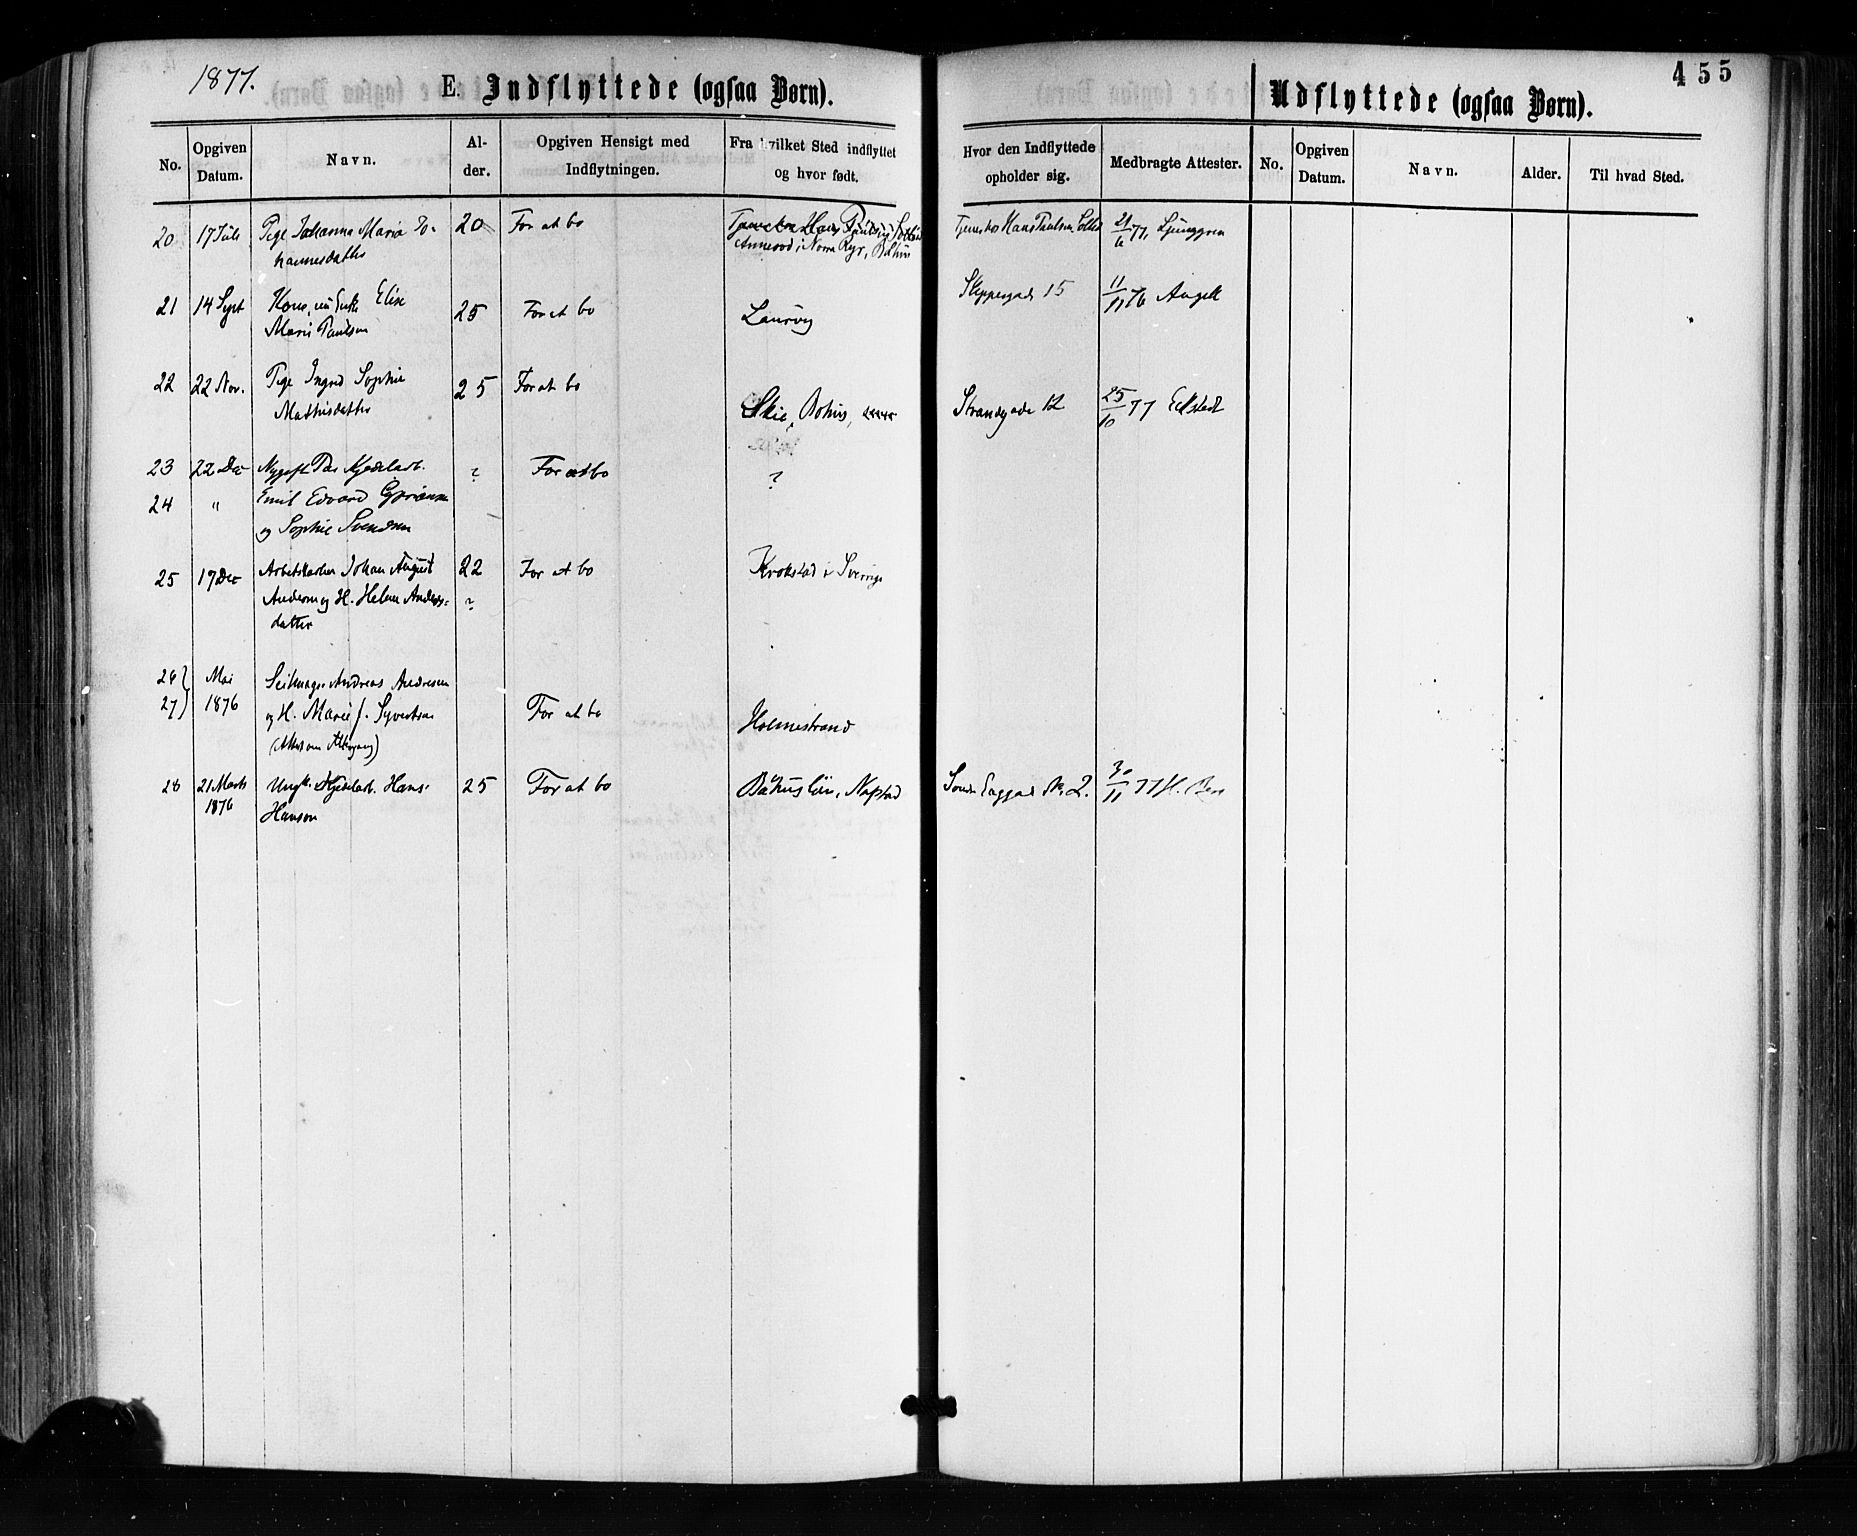 1877.
E. Indflyttede (ogsaa Børn).
Udflyttede (ogsaa Børn).
455
No.
Opgiven Datum.
Navn.
Al-der.
Opgiven Hensigt med Indflytningen.
Fra hvilket Sted indflyttet og hvor født.
Hvor den Indflyttede opholder sig.
Medbragte Attester.
No.
Opgiven Datum.
Navn.
Alder.
Til hvad Sted.
20 17 Juli Pige Johanna Maria Jo- 20 For at bo
hannesdatter Annerød i Norra Ryr, Båhus
Tjeneste Hans Paulsen 21/6 77, Ljunggren
21 14 Sept Kone, nu Enke Elise 25 For at bo Laurvig Skippergade 15 11/11 76 Angell
Marie Paulsen
22 22 Nov. Pige Ingrid Sophie 25 For at bo
Mathisdatter Skie, Bohus, Strandgade 12 25/10 77 Eckstedt
23 22 Dec Nygift Par Kjedelarb. ? For at bo ?
24 " Emil Edvard
og Sophie Svendsen
25 17 Dec Arbeidskarlen Johan August 22 For at bo Krokstad i Sverrige
Andersen og H. Helene Anders- ?
datter
26) Mai Seilmager Andreas Andresen
27) 1876 og H. Marie f. Syvertsen For at bo Holmestrand
(Attest om Altergang)
28 21 Marts Ungk. Kjedelarb. Hans 25 For at bo Båhuslän, Nafstad No. 2. 30/11 77 H.
1876 Hanson